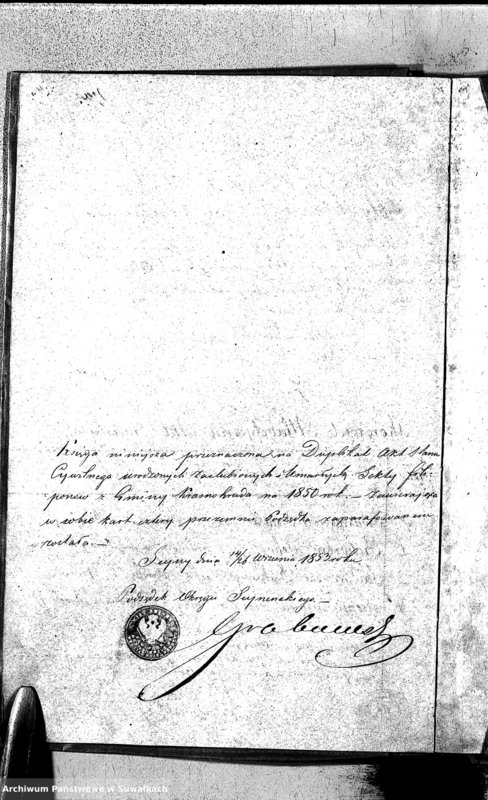 Księga niniejsza przeznaczona na Duplikat Akt Stanu
Cywilnego urodzonych zaślubionych i Umarłych Sekty fili-
ponów z Gminy Krasnokruda na 1850 rok. – zawierająca
w sobie kart cztery przezemnie Podsędka zaparafowanem
została. –
Seyny dnia 14/26 Września 1853 roku
Podsędek Okręgu Seynenskiego. –
Archiwum Państwowe w Suwałkach